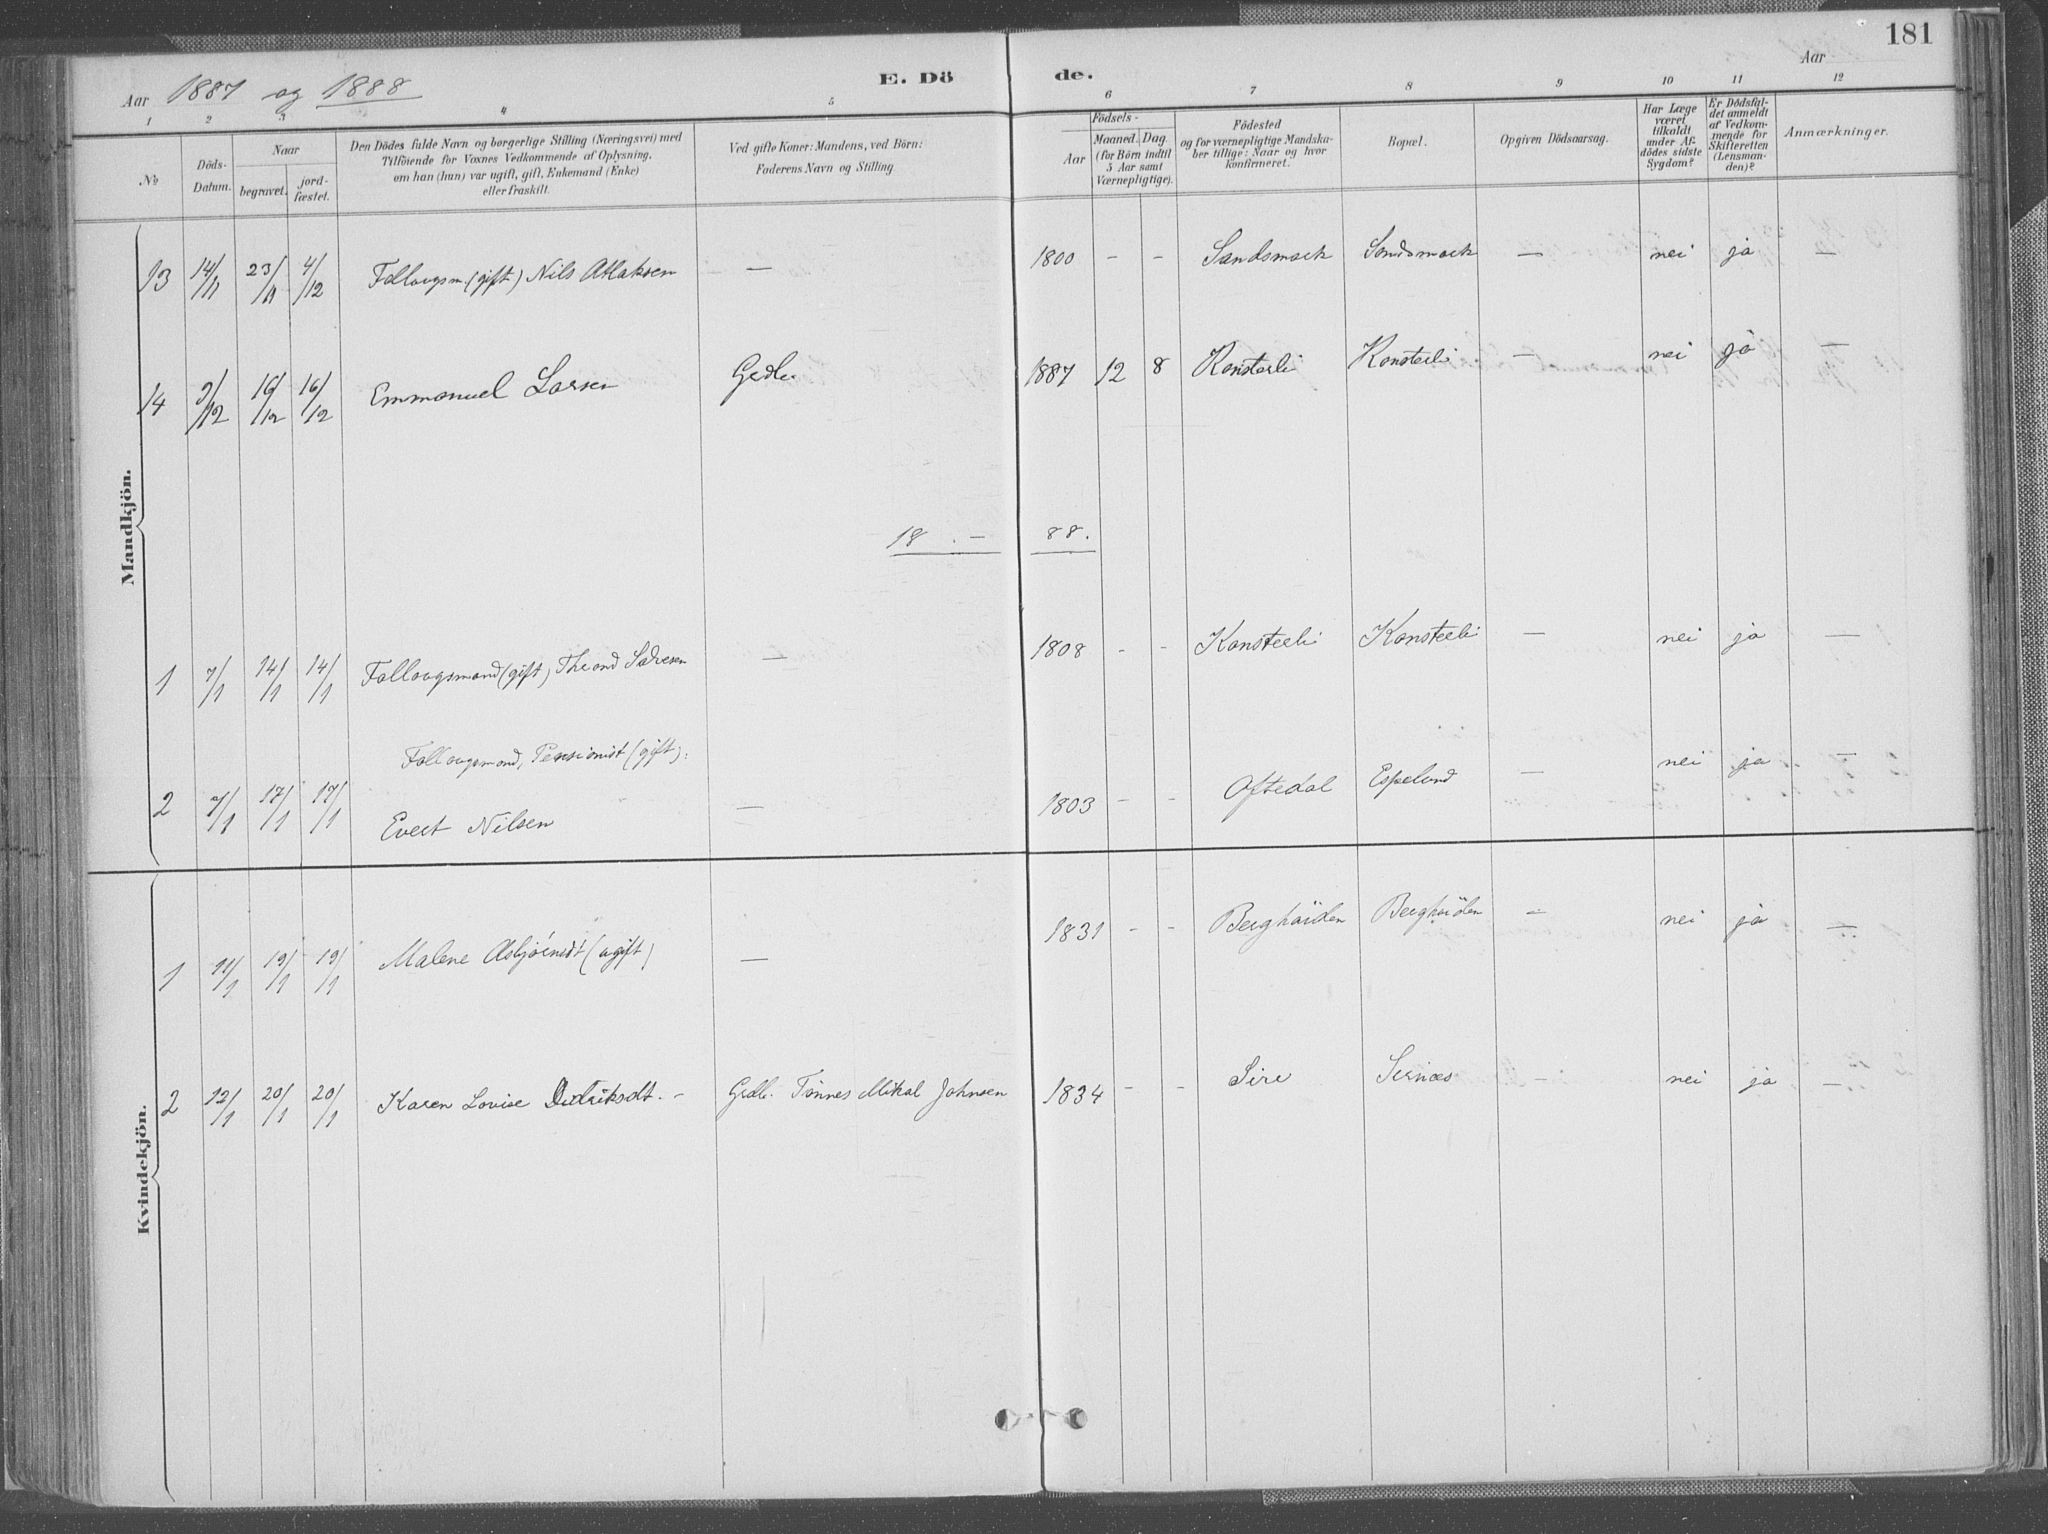 181
Aar 1887 og 1888 E. Dö de. Aar
1 2 3 4 5 6 7 8 9 10 11 12
No
Döds-Datum.
Naar
begravet.
jord-fæstet.
Den Dödes fulde Navn og borgerlige Stilling (Næringsvei) med
Tilföiende for Voxnes Vedkommende af Oplysning,
om han (hun) var ugift, gift, Enkemand (Enke)
eller fraskilt.
Ved gifte Koner: Mandens, ved Börn:
Faderens Navn og Stilling
Födsels-
Aar
Maaned. Dag.
(for Börn indtil
5 Aar samt
Værnepligtige).
Födested
og for værnepligtige Mandska-
ber tillige: Naar og hvor
konfirmeret.
Bopæl.
Opgiven Dödsaarsag.
Har Læge
været
tilkaldt
under Af-
dödes sidste
Sygdom?
Er Dödsfal-
det anmeldt
af Vedkom-
mende for
Skifteretten
(Lensman-
den)?
Anmærkninger.
Mandkjön.
13 14/11 23/11 4/12 Follaugsm. (gift) Nils Atlaksen — 1800 - - Sandsmark Sandsmark — nei ja —
14 9/12 16/12 16/12 Emmanuel Larsen Grdbr. 1887 12 8 Konsterli Konsterli — nei ja —
18 . — 88.
1 7/1 14/1 14/1 Follaugsmand (gift) — 1808 - - Konsterli Konsterli — nei ja —
Follaugsmand, Pensionist (gift).
2 7/1 17/1 17/1 Evert Nilsen — 1803 - - Oftedal Espeland — nei ja —
Kvindekjön.
1 11/1 19/1 19/1 Malene Asbjörnsdt (ugift) — 1831 - - Berghöiden Berghöiden — nei ja —
2 12/1 20/1 20/1 Karen Lovise Didriksdt. - Grdb. Tönnes Mikal Johnsen 1834 - - Sire Sirnæs - nei ja —